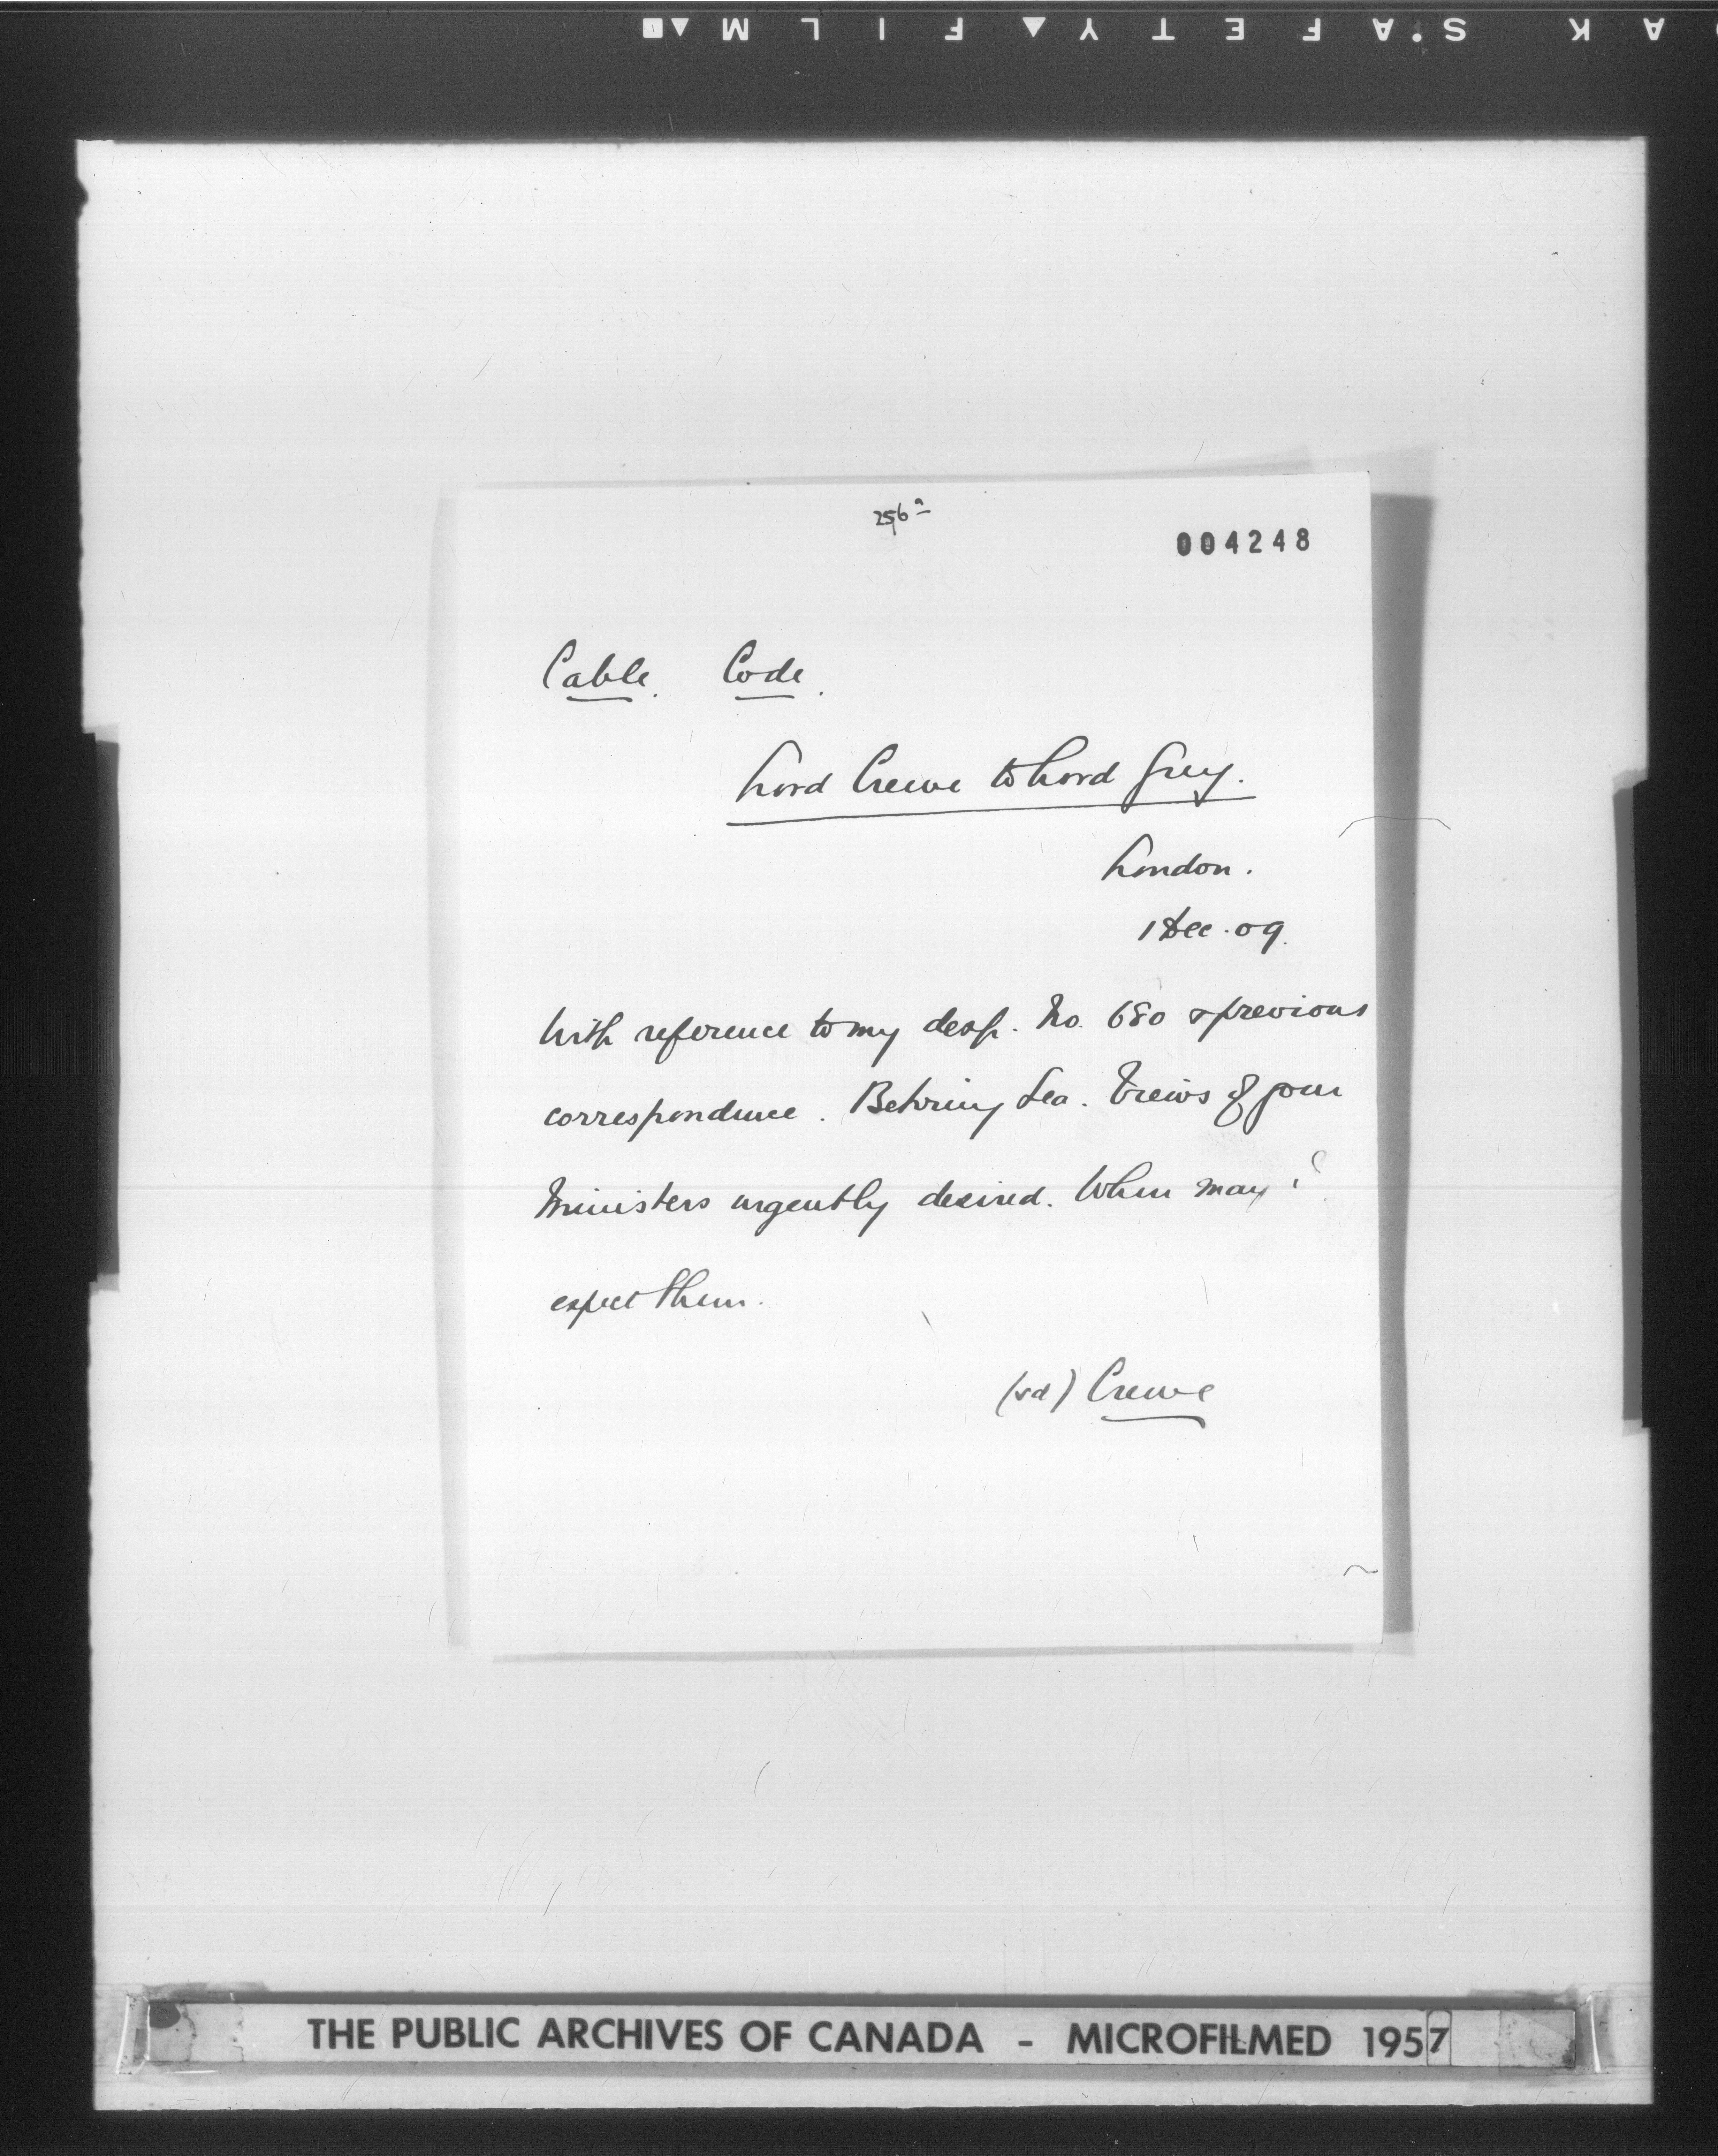 AK SAFETY FILM
256a
004248
Cable. Code.
Lord Crewe to Lord Grey.
London.
1 Dec. 09.
With reference to my desp. No. 680 & previous
correspondence. Behring Sea. Views of your
Ministers urgently desired. When may i
expect them.
(sd) Crewe
THE PUBLIC ARCHIVES OF CANADA - MICROFILMED 1957